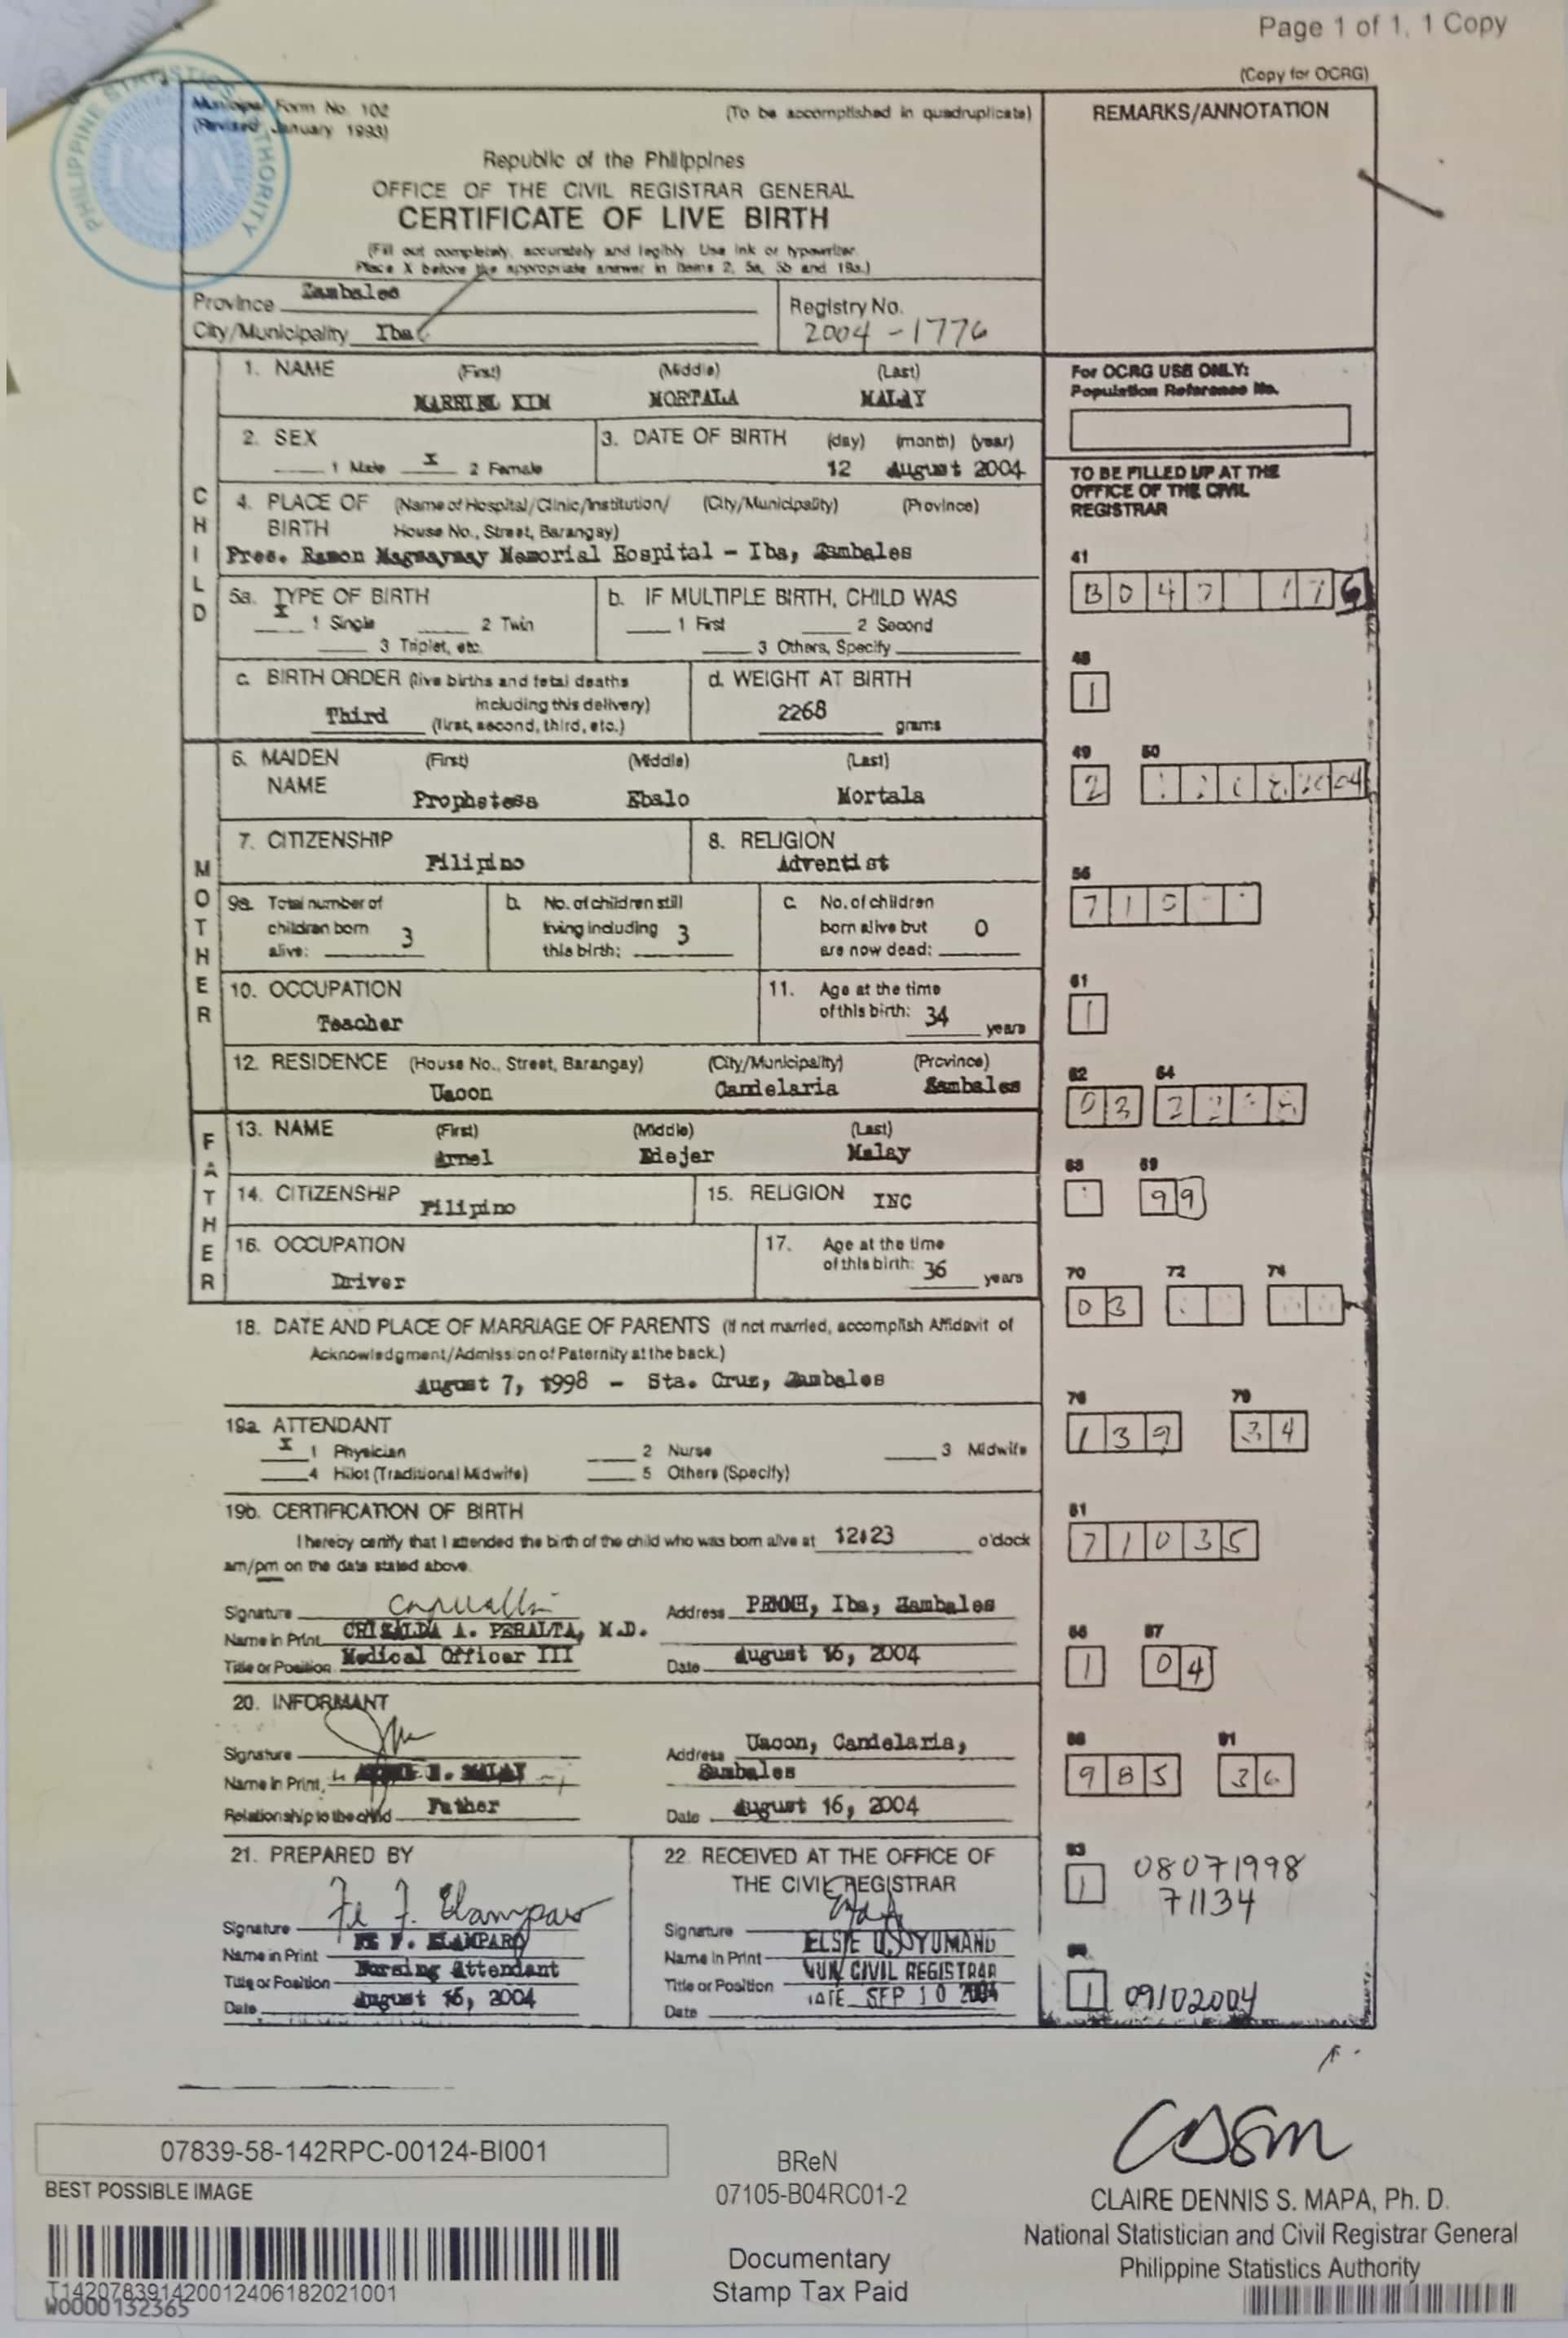 Page 1 of 1, 1 Copy
(Copy for OCRG)
PHILIPPINE STATISTICS AUTHORITY
Municipal Form No. 102
(Revised January 1993)
(To be accomplished in quadruplicate)
REMARKS/ANNOTATION
Republic of the Philippines
OFFICE OF THE CIVIL REGISTRAR GENERAL
CERTIFICATE OF LIVE BIRTH
(Fill out completely, accurately and legibly. Use ink or typewriter.
Place X before the appropriate answer in items 2, 5a, 5b and 19a.)
Province Zambales
City/Municipality Iba
Registry No.
2004-1776
CHILD
1. NAME (First) (Middle) (Last)
MARRIEL KIM MORTALA MALAY
For OCRG USE ONLY:
Population Reference No.
2. SEX
1 Male X 2 Female
3. DATE OF BIRTH (day) (month) (year)
12 August 2004
TO BE FILLED UP AT THE
OFFICE OF THE CIVIL
REGISTRAR
4. PLACE OF BIRTH (Name of Hospital/Clinic/Institution/ (City/Municipality) (Province)
House No., Street, Barangay)
Pres. Ramon Magsaysay Memorial Hospital - Iba, Zambales
41
5a. TYPE OF BIRTH
X 1 Single 2 Twin
3 Triplet, etc.
b. IF MULTIPLE BIRTH, CHILD WAS
1 First 2 Second
3 Others, Specify
48
1
c. BIRTH ORDER (live births and fetal deaths
including this delivery)
Third (first, second, third, etc.)
d. WEIGHT AT BIRTH
2268 grams
MOTHER
6. MAIDEN NAME (First) (Middle) (Last)
Prophetess Ebalo Mortala
49 50
2
7. CITIZENSHIP
Filipino
8. RELIGION
Adventist
56
9a. Total number of
children born
alive: 3
b. No. of children still
living including
this birth: 3
c. No. of children
born alive but
are now dead: 0
10. OCCUPATION
Teacher
11. Age at the time
of this birth: 34 years
61
1
12. RESIDENCE (House No., Street, Barangay) (City/Municipality) (Province)
Uacon Candelaria Zambales
62 64
03
FATHER
13. NAME (First) (Middle) (Last)
Arnel Edejer Malay
68 69
99
14. CITIZENSHIP
Filipino
15. RELIGION INC
16. OCCUPATION
Driver
17. Age at the time
of this birth: 36 years
70 72 74
03
18. DATE AND PLACE OF MARRIAGE OF PARENTS (If not married, accomplish Affidavit of
Acknowledgment/Admission of Paternity at the back.)
August 7, 1998 - Sta. Cruz, Zambales
76 79
139 34
19a. ATTENDANT
X 1 Physician 2 Nurse 3 Midwife
4 Hilot (Traditional Midwife) 5 Others (Specify)
19b. CERTIFICATION OF BIRTH
I hereby certify that I attended the birth of the child who was born alive at 12:23 o'clock
am/pm on the date stated above.
81
71035
Signature
Address PRMMH, Iba, Zambales
Name in Print CRISALDA A. PERALTA, M.D.
Title or Position Medical Officer III
Date August 16, 2004
86 87
1 04
20. INFORMANT
Signature
Address Uacon, Candelaria,
Zambales
Name in Print E. MALAY
Relationship to the child Father
Date August 16, 2004
88 91
985 36
21. PREPARED BY
Signature Fe F. Elamparo
Name in Print FE F. ELAMPARO
Title or Position Nursing Attendant
Date August 16, 2004
22. RECEIVED AT THE OFFICE OF
THE CIVIL REGISTRAR
Signature
Name in Print ELSIE U. YUMAND
Title or Position MUN. CIVIL REGISTRAR
Date DATE SEP 10 2004
93
1 08071998
71134
94
1 09102004
07839-58-142RPC-00124-BI001
BEST POSSIBLE IMAGE
T142078391420012406182021001
W0000132365
BReN
07105-B04RC01-2
Documentary
Stamp Tax Paid
CLAIRE DENNIS S. MAPA, Ph. D.
National Statistician and Civil Registrar General
Philippine Statistics Authority